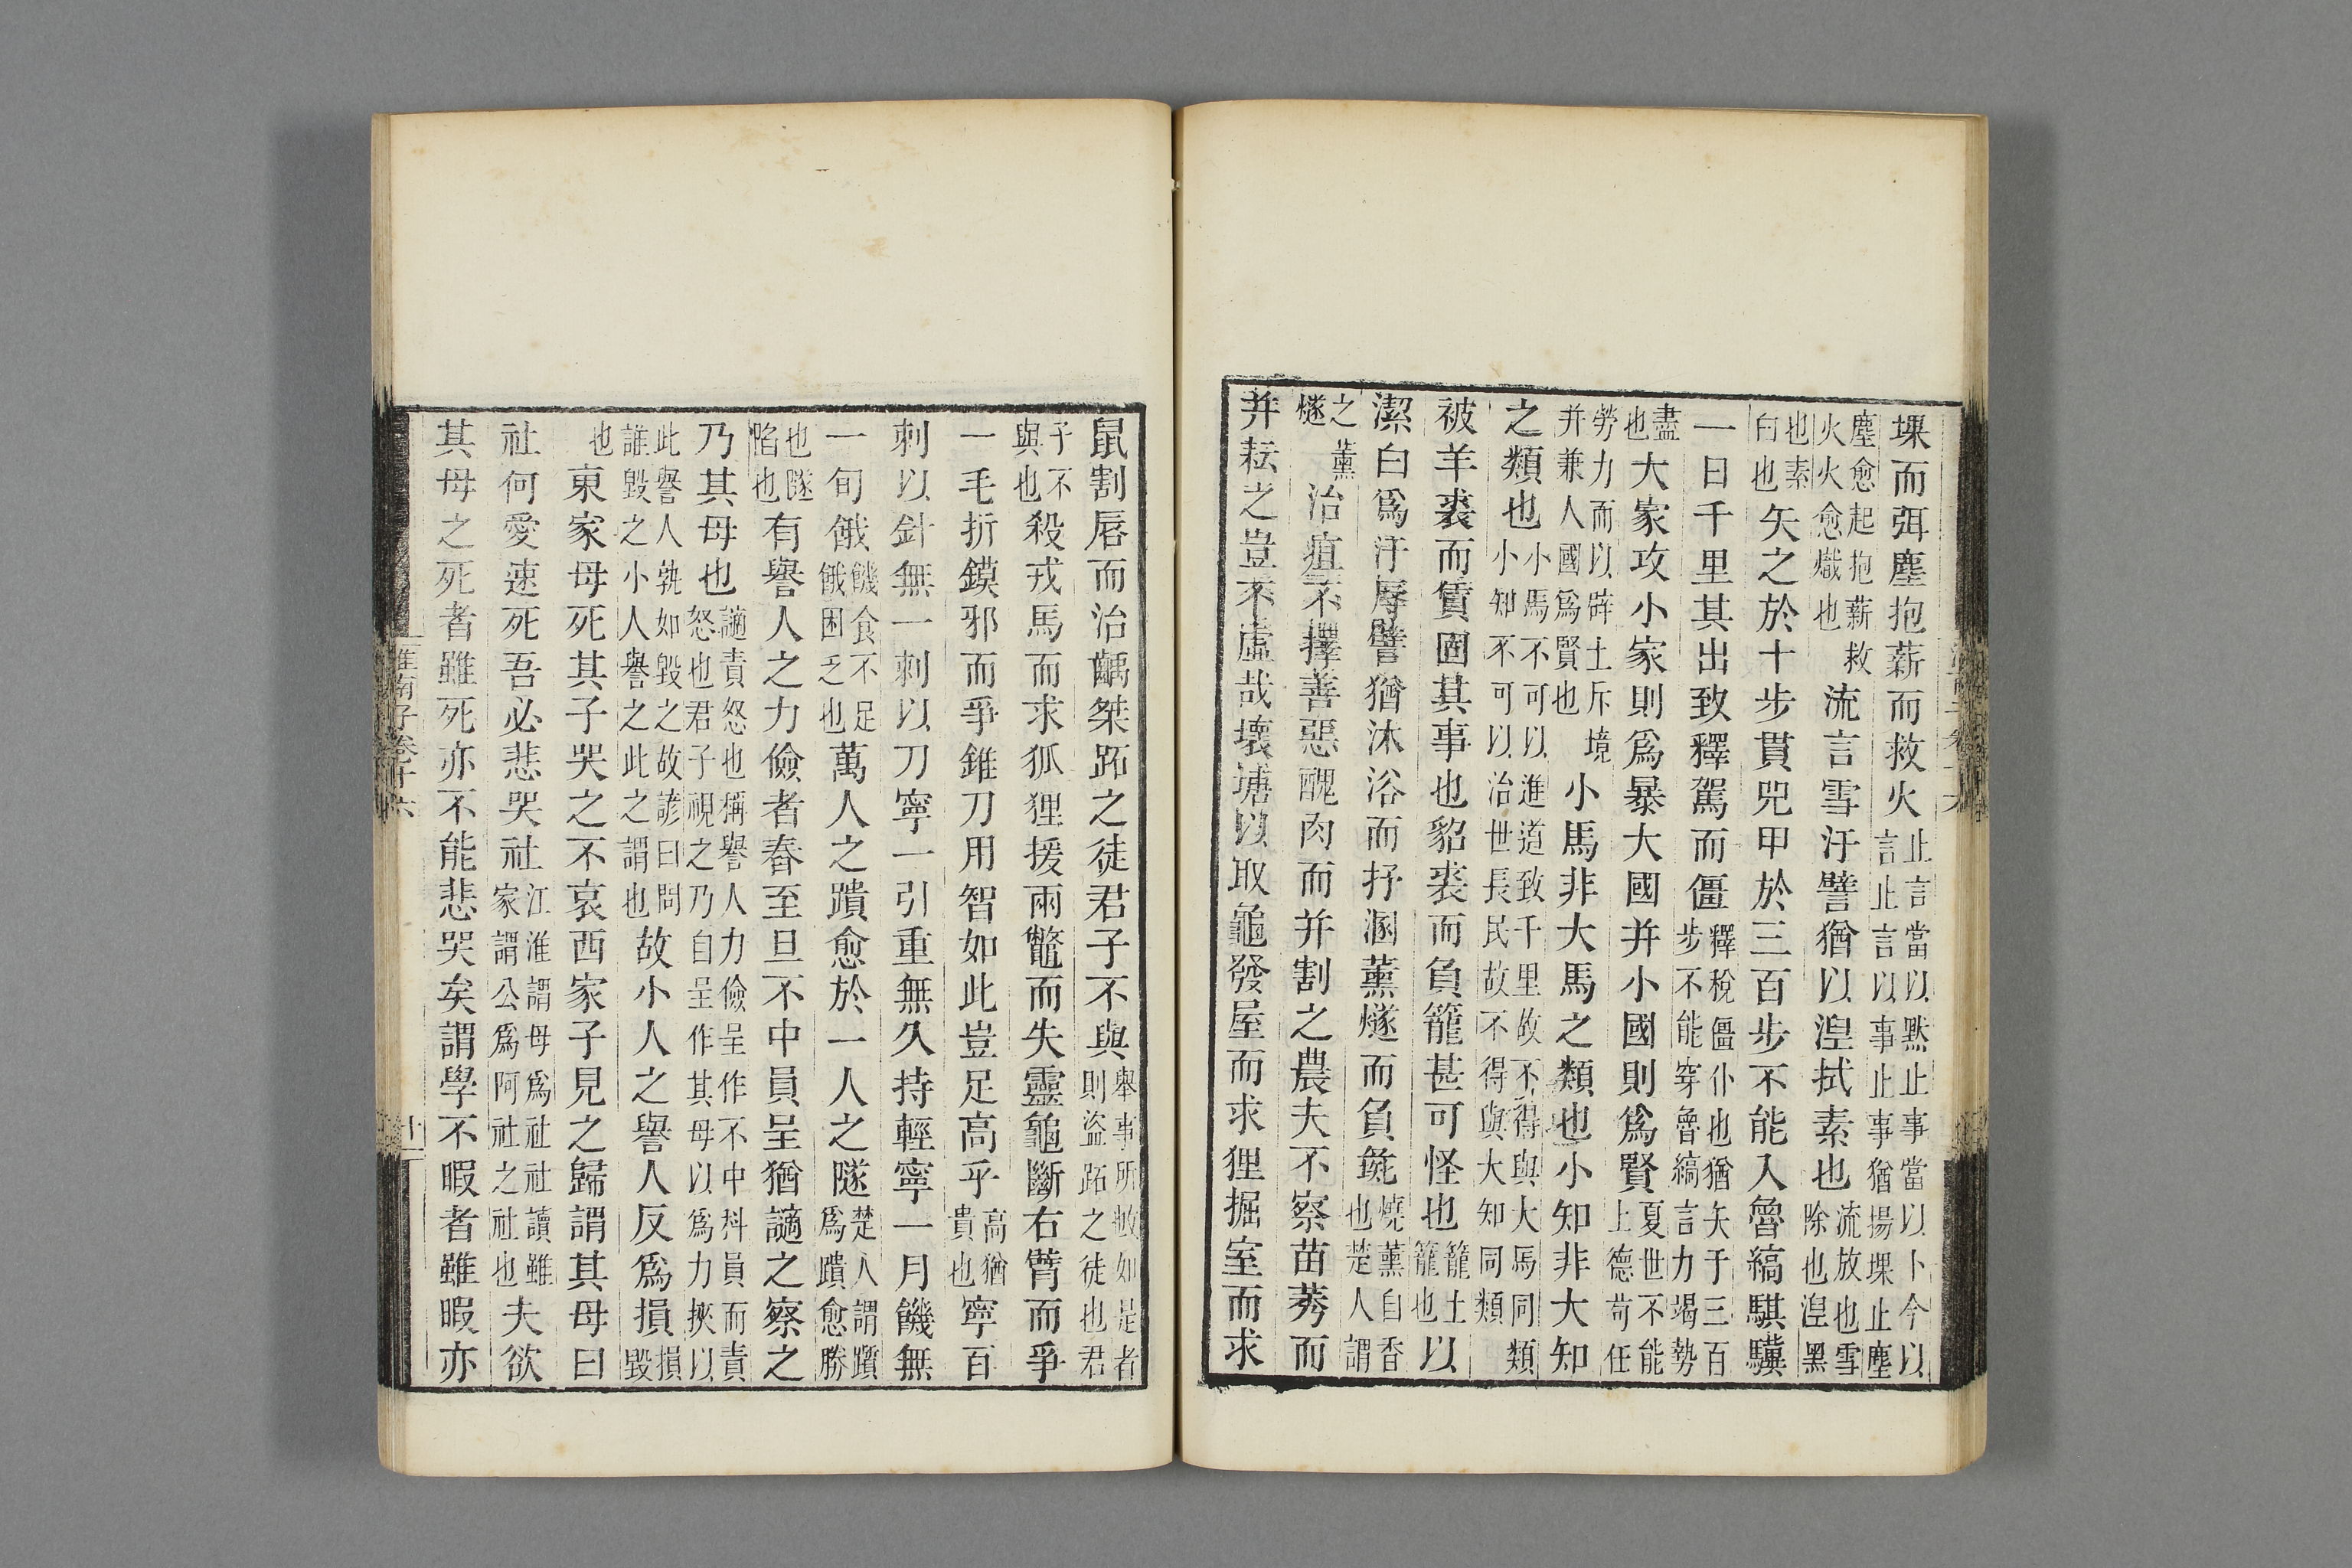 堁而弭塵抱薪而救火止言當以默止事當以卜今以言止言以事止事猶揚堁止塵
塵愈起抱薪救火火愈熾也流言雪汙譬猶以涅拭素也流放也雪除也涅黑
也素曰也矢之於十步貫兕甲於三百步不能入魯縞騏驥
一日千里其出致釋駕而僵釋稅僵仆也猶矢于三百步不能穿魯縞言力竭勢
盡也大家攻小家則爲暴大國并小國則爲賢夏世不能上德苟任
勞力而以辟土斥境并兼人國爲賢也小馬非大馬之類也小知非大知
之類也小馬不可以進道致千里故不得與大馬同類小知不可以治世長民故不得與大知同類
被羊裘而賃固其事也貂裘而負籠甚可怪也籠土籠也以
潔白爲汙辱譬猶沐浴而抒溷薰燧而負彘燒薰自香也楚人謂
之薰燧治疽不擇善惡醜肉而并割之農夫不察苗莠而
并耘之豈不虛哉壞塘以取龜發屋而求狸掘室而求
鼠割唇而治齲桀跖之徒君子不與舉事所如是者則盜跖之徒也君
子不與也殺戎馬而求狐狸援兩鼈而失靈龜斷右臂而爭
一毛折鏌邪而爭錐刀用智如此豈足高乎高猶貴也寧百
刺以針無一刺以刀寧一引重無久持輕寧一月饑無
一旬餓饑食不足餓困乏也萬人之蹪愈於一人之隧楚人謂躓爲蹪愈勝
也隧陷也有譽人之力儉者舂至旦不中員呈猶讁之察之
乃其母也讁責怒也稱譽人力儉呈作不中科員而責怒也君子視之乃自呈作其母以爲力挾以
此譽人孰如毀之故諺曰問誰毀之小人譽之此之謂也故小人之譽人反爲損損毀
也東家母死其子哭之不哀西家子見之歸謂其母曰
社何愛速死吾必悲哭社江淮謂母爲社社讀雖家謂公爲阿社之社也夫欲
其母之死者雖死亦不能悲哭矣謂學不暇者雖暇亦
淮南子卷十六
十一